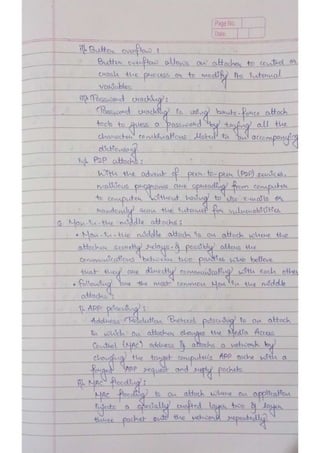 Page No.
Date
ii) Buffer overflow :
Buffer overflow allows an attacker to control or
crash the process or to modify its internal
variables
iii) Password cracking :
Password cracking is using brute-force attack
tools to guess a password by trying all the
character combinations listed in an accompanying
dictionary.
iv) P2P attacks :
With the advent of peer-to-peer (P2P) services,
malicious programs are spreading from computer
to computer without having to use e-mails or
randomly scan the Internet for vulnerabilities
Man-in-the middle attacks :
• Man-in-the middle attack is an attack where the
attacker secretly relays & possibly alters the
communications between two parties who believe
that they are directly communicating with each other
• Following are the most common Man in the middle
attacks :
i) ARP poisoning :
Address Resolution Protocol poisoning is an attack
in which an attacker changes the Media Access
Control (MAC) address & attacks a network by
changing the target computer's ARP cache with a
forged ARP request and reply packets
ii) MAC flooding :
MAC flooding is an attack where an application
injects a specially crafted layer two & layer
three packet onto the network repeatedly